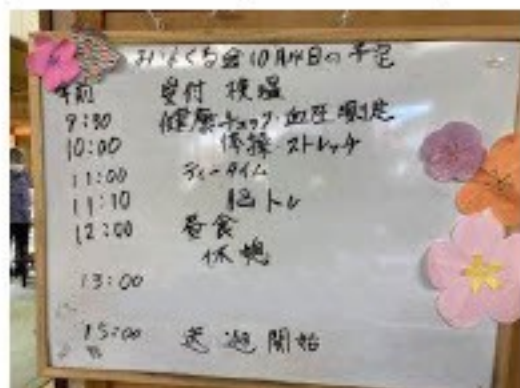 みいくら会10月14日の予定
午前 受付 検温
9:30 健康チェック・血圧測定
10:00 体操 ストレッチ
11:00 ティータイム
11:10 脳トレ
12:00 昼食
休憩
13:00
15:00 送迎開始